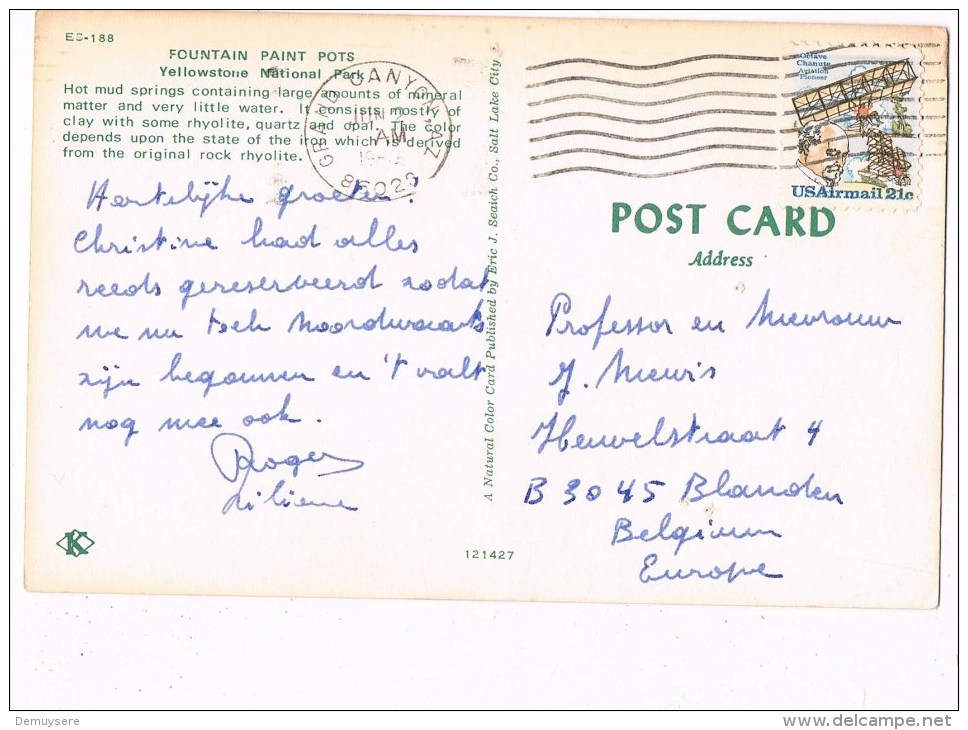 EC-188
FOUNTAIN PAINT POTS
Yellowstone National Park
Hot mud springs containing large amounts of mineral
matter and very little water. It consists mostly of
clay with some rhyolite, quartz and opal. The color
depends upon the state of the iron which is derived
from the original rock rhyolite.
GRAND CANYON, AZ
JUN
AM
86023
Hartelijke groeten!
Christine had alles
reeds gereserveerd zodat
we nu toch Noordwaarts
zijn begonnen en 't valt
nog mee ook.
Roger
Liliane
K
A Natural Color Card Published by Eric J. Seaich Co., Salt Lake City
121427
Octave
Chanute
Aviation
Pioneer
USAirmail 21c
POST CARD
Address
Professor en Mevrouw
J. Mewis
Heuvelstraat 4
B 3045 Blanden
Belgium
Europe
Demuysere
www.delcampe.net